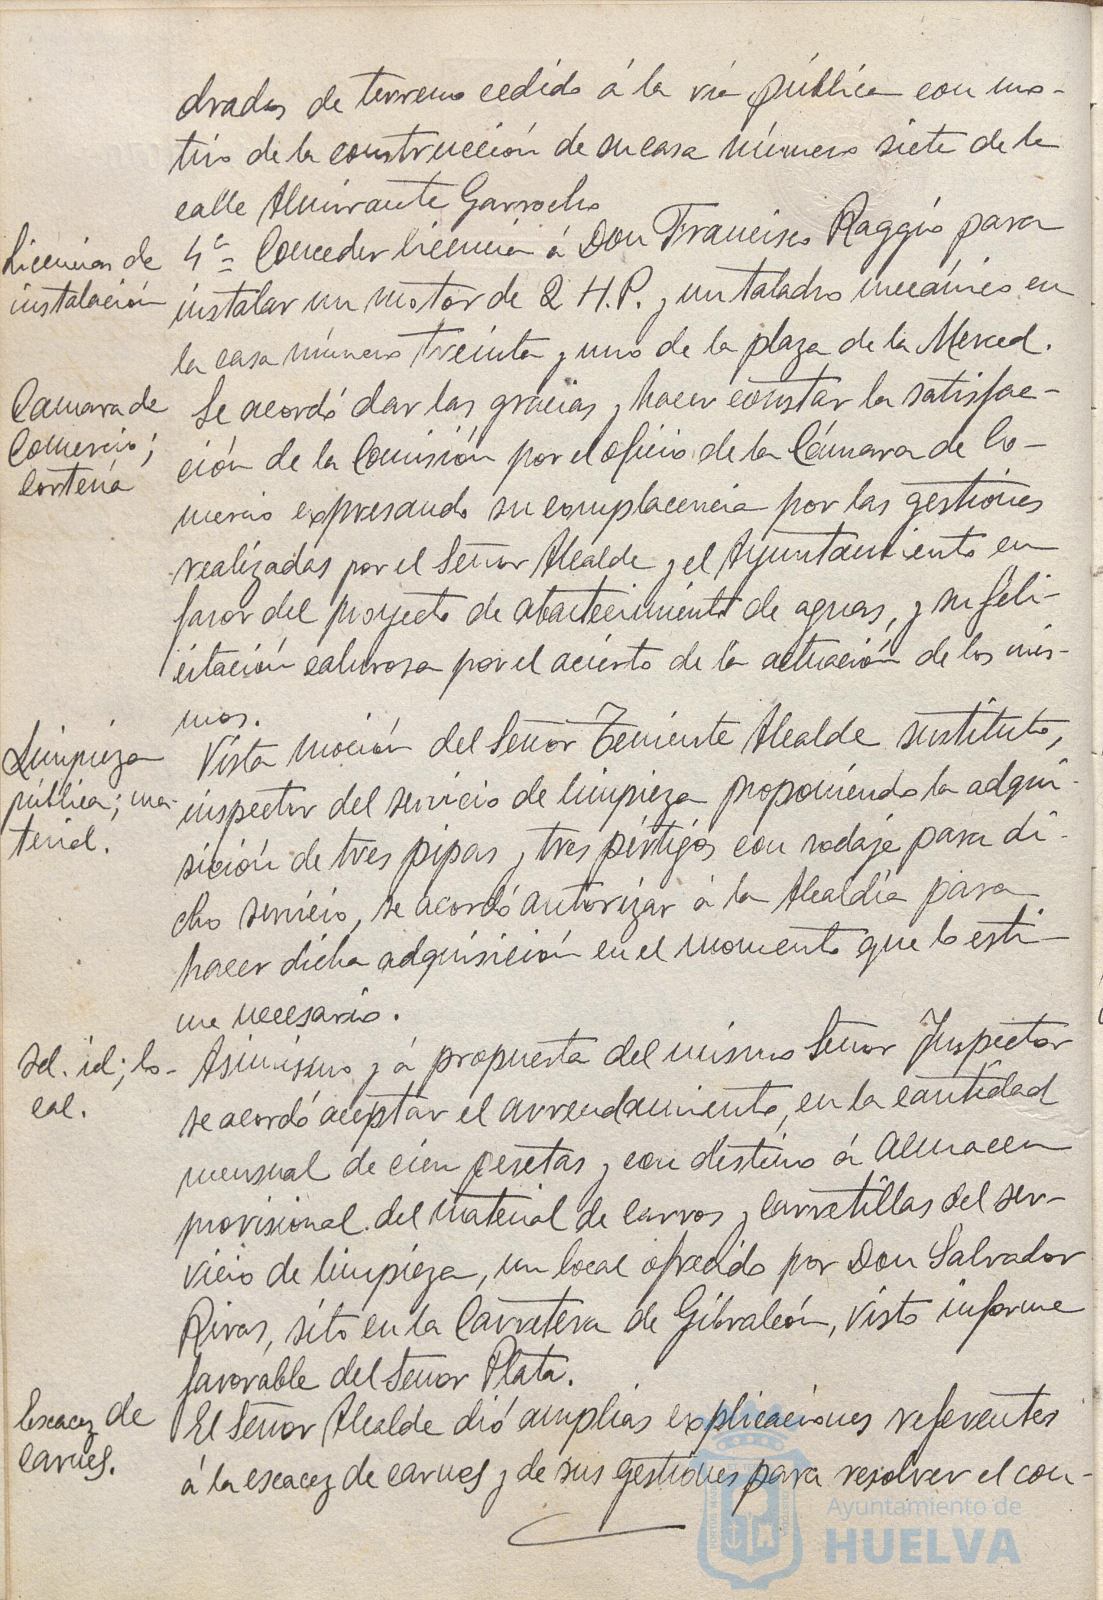 drados de terreno cedido á la via pública con mo-
tivo de la construcción de su casa número siete de la
calle Almirante Garrocho
Licencias de
instalación
4º = Conceder licencia á Don Francisco Raggio para
instalar un motor de 2 H.P. y un taladro mecánico en
la casa número treinta y uno de la plaza de la Merced.
Camara de
Comercio;
cortesía
Se acordó dar las gracias y hacer constar la satisfac-
ción de la Comisión por el oficio de la Cámara de Co-
mercio expresando su complacencia por las gestiones
realizadas por el Señor Alcalde y el Ayuntamiento en
favor del proyecto de abastecimiento de aguas, y su feli-
citación calurosa por el acierto de la actuación de los mis-
mos.
Limpieza
pública; ma-
terial.
Vista moción del Señor Teniente Alcalde sustituto,
inspector del servicio de limpieza proponiendo la adqui-
sición de tres pipas y tres pértigos con rodaje para di-
cho servicio, se acordó autorizar á la Alcaldía para
hacer dicha adquisición en el momento que lo esti-
me necesario.
Id. id; lo-
cal.
Asimismo y á propuesta del mismo Señor Inspector
se acordó aceptar el arrendamiento, en la cantidad
mensual de cien pesetas y con destino á almacen
provisional del material de carros y carretillas del ser-
vicio de limpieza, un local ofrecido por Don Salvador
Rivas, sito en la Carretera de Gibraleón, visto informe
favorable del Señor Plata.
Escacez de
carnes.
El Señor Alcalde dió amplias explicaciones referentes
á la escacez de carnes y de sus gestiones para resolver el con-
Ayuntamiento de
HUELVA